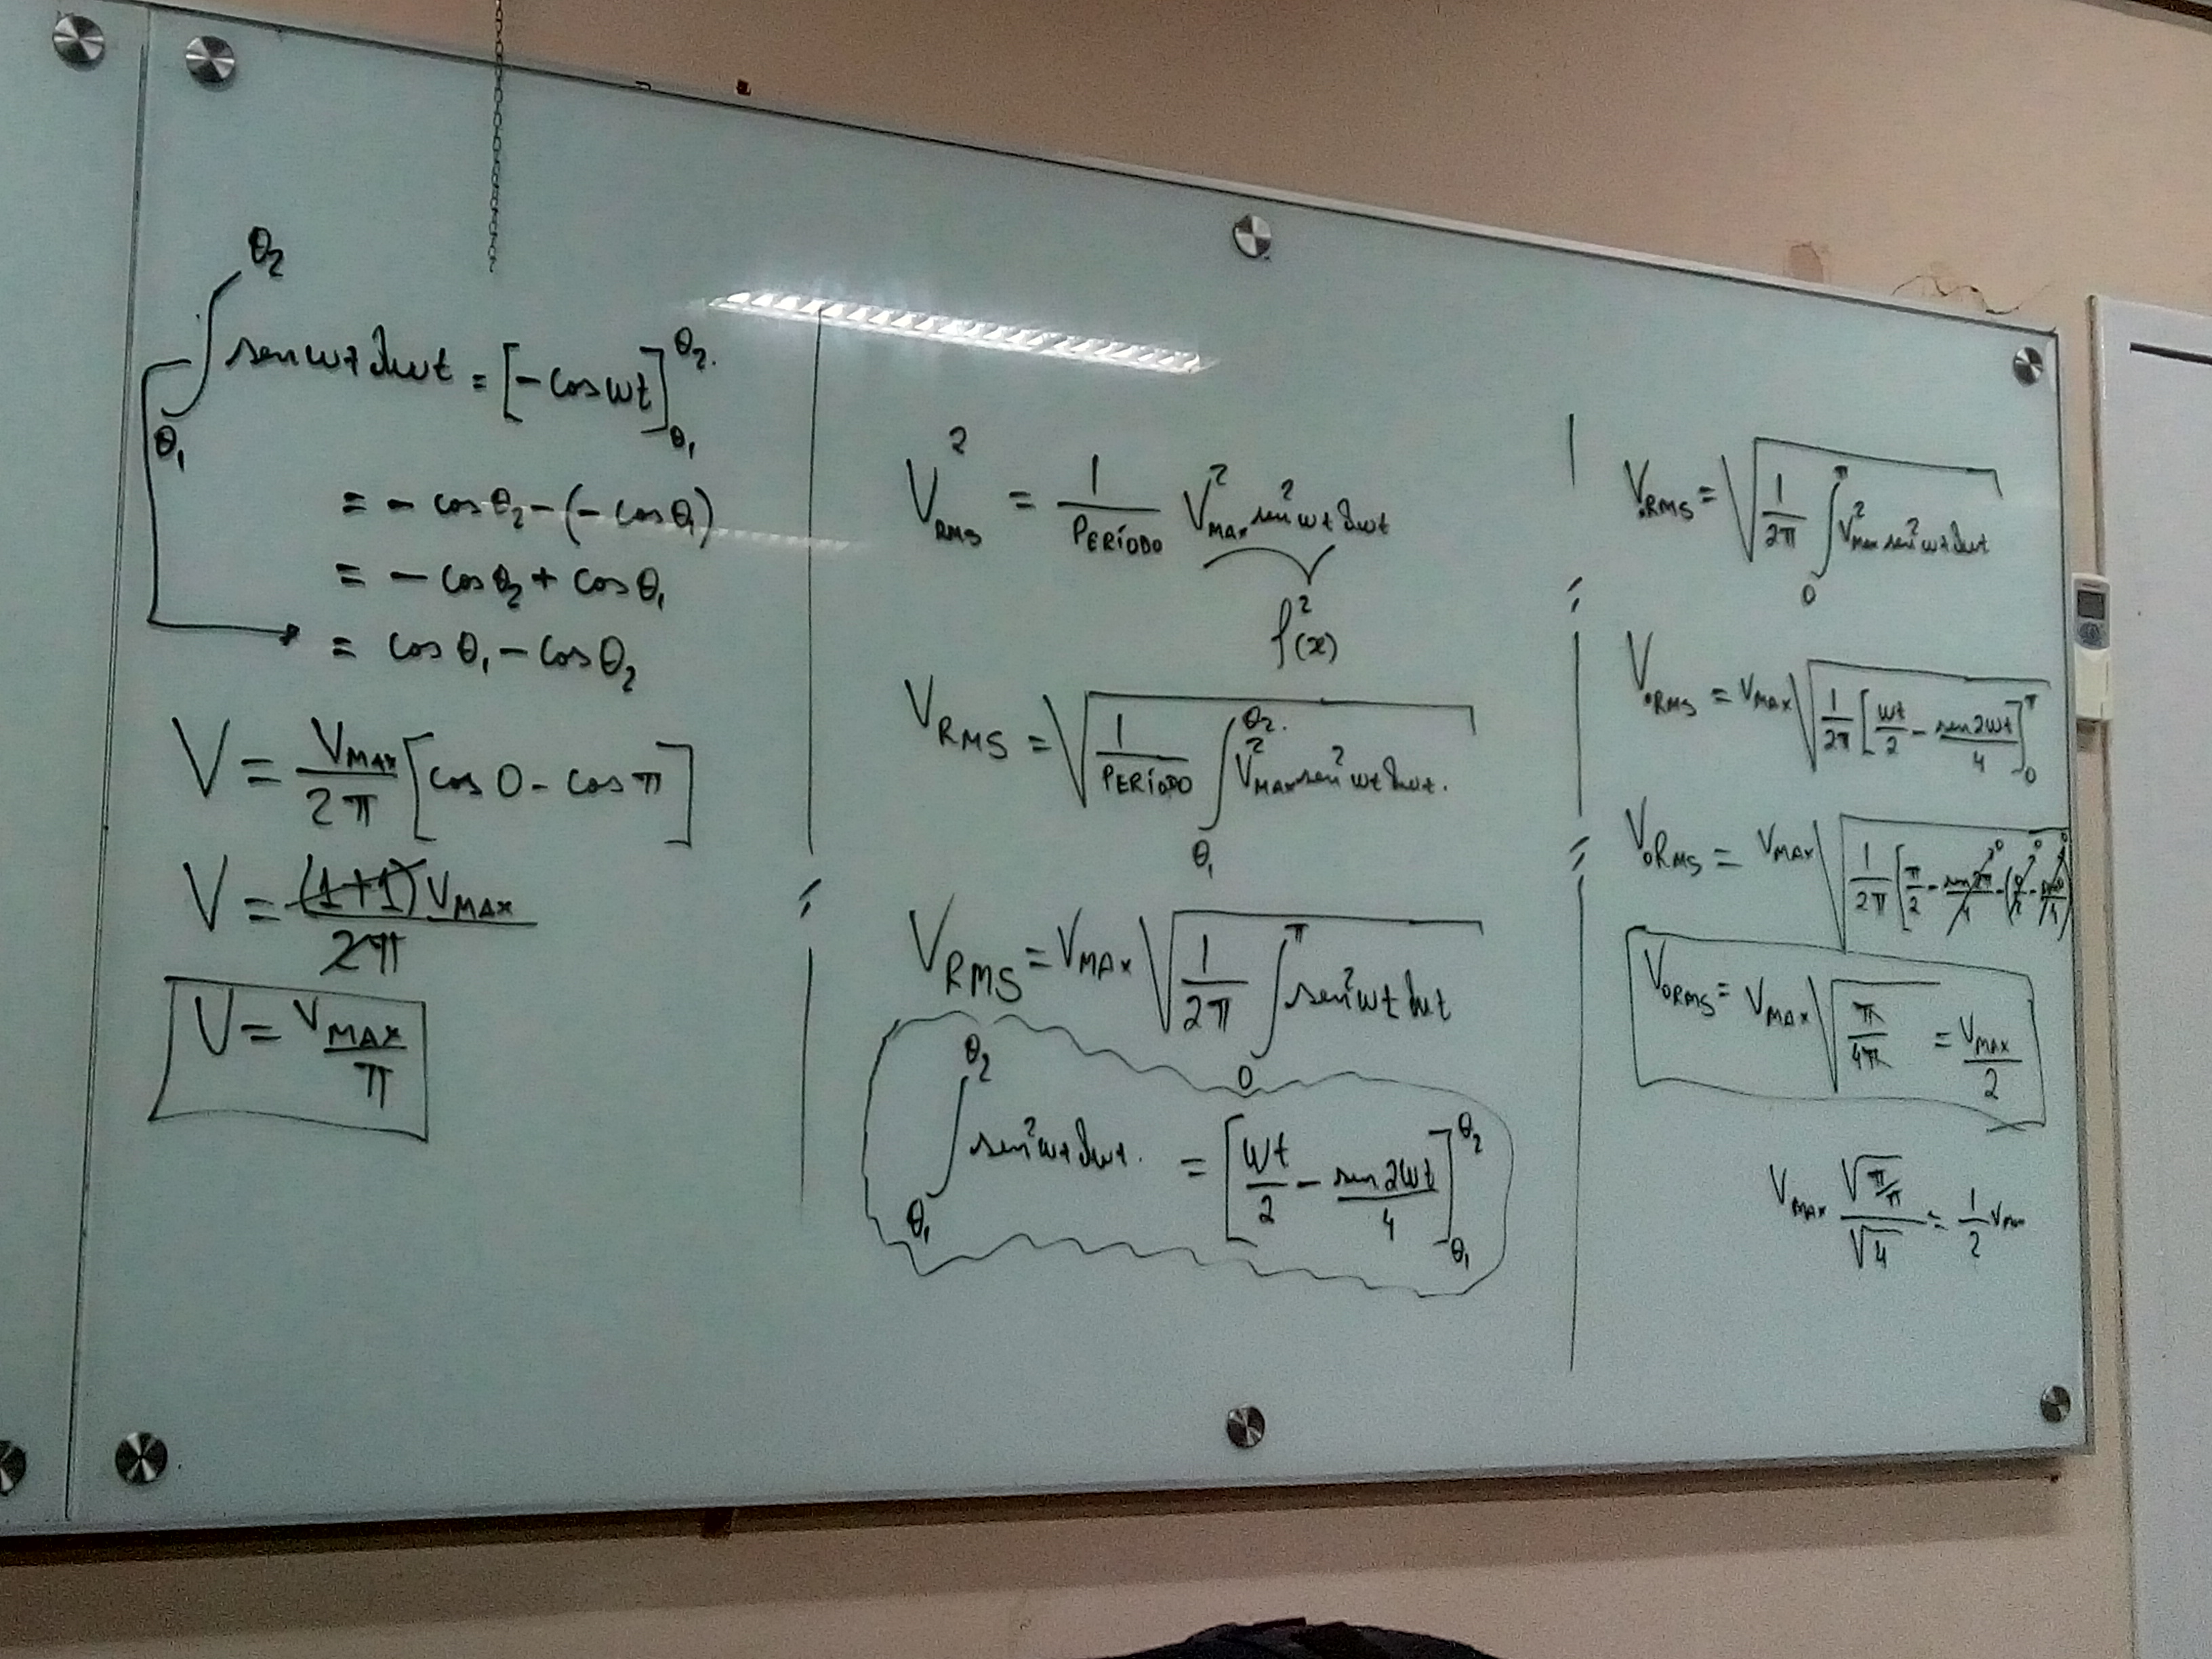 ∫_{θ₁}^{θ₂} sen wt dwt = [-cos wt]_{θ₁}^{θ₂}.
= - cos θ₂ - (- cos θ₁)
= - cos θ₂ + cos θ₁
= cos θ₁ - cos θ₂
V = V_MAX/2π [cos 0 - cos π]
V = (1+1) V_MAX / 2π
V = V_MAX/π
V²_RMS = 1/PERÍODO V²_MAX sen² wt dwt
f²(x)
V_RMS = √(1/PERÍODO ∫_{θ₁}^{θ₂.} V²_MAX sen² wt dwt.)
V_RMS = V_MAX √(1/2π ∫_0^π sen² wt dwt)
∫_{θ₁}^{θ₂} sen² wt dwt. = [wt/2 - sen 2wt/4]_{θ₁}^{θ₂}
V_oRMS = √(1/2π ∫_0^π V²_MAX sen² wt dwt)
V_oRMS = V_MAX √(1/2π [wt/2 - sen 2wt/4]_0^π)
V_oRMS = V_MAX √(1/2π [π/2 - sen 2π/4 - (0/2 - sen 0/4)
V_oRMS = V_MAX √(π/4π) = V_MAX/2
V_MAX √(π/π)/√4 = 1/2 V_MAX